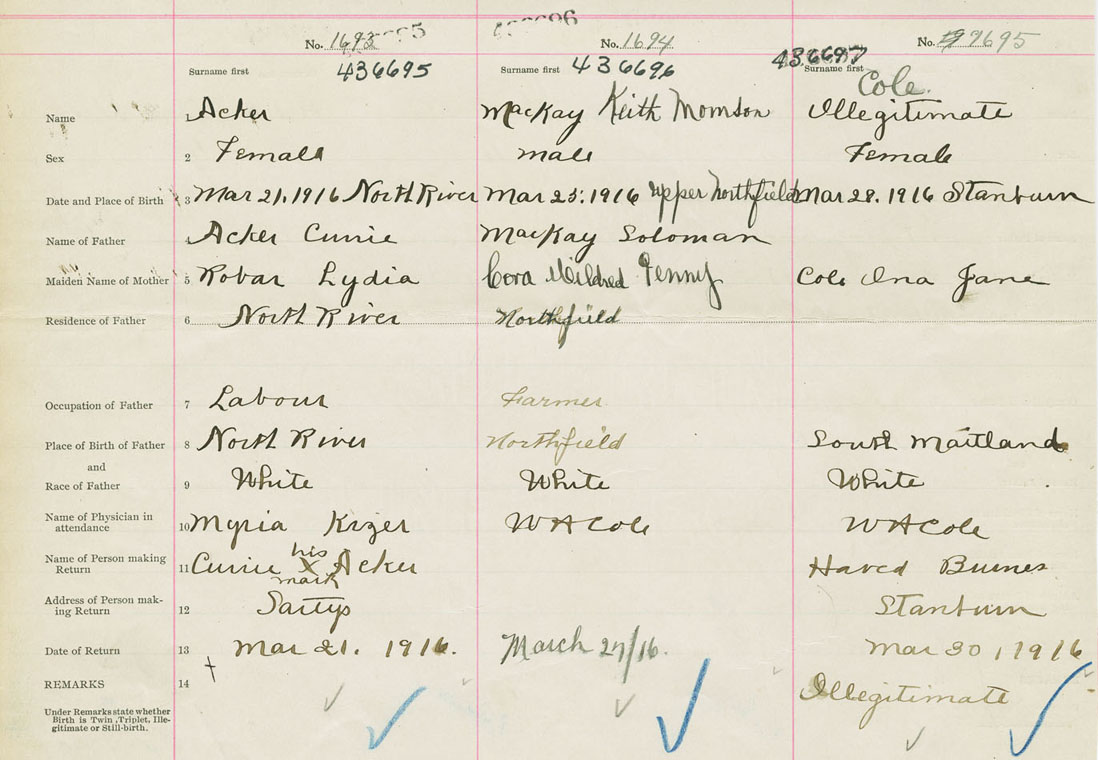 No. 1693 No. 1694 No. 1695
Surname first 436695 Surname first 436696 436697 Surname first
Cole.
Name Acker MacKay Keith Momson Illegitimate
Sex 2 Female male Female
Date and Place of Birth 3 Mar 21, 1916 North River Mar 25, 1916 upper Northfield Mar 28, 1916 Stanburn
Name of Father 4 Acker Currie MacKay Soloman
Maiden Name of Mother 5 Robar Lydia Cora Mildred Penny Cole Ina Jane
Residence of Father 6 North River Northfield
Occupation of Father 7 Labour Farmer
Place of Birth of Father 8 North River Northfield South Maitland
and
Race of Father 9 White White White
Name of Physician in
attendance 10 Myria W H Cole W H Cole
his
Name of Person making
Return 11 Currie X Acker
mark
Address of Person mak-
ing Return 12 Stanburn
Date of Return 13 Mar 21. 1916. March 27/16. Mar 30, 1916
REMARKS 14 Illegitimate
Under Remarks state whether
Birth is Twin, Triplet, Ille-
gitimate or Still-birth.